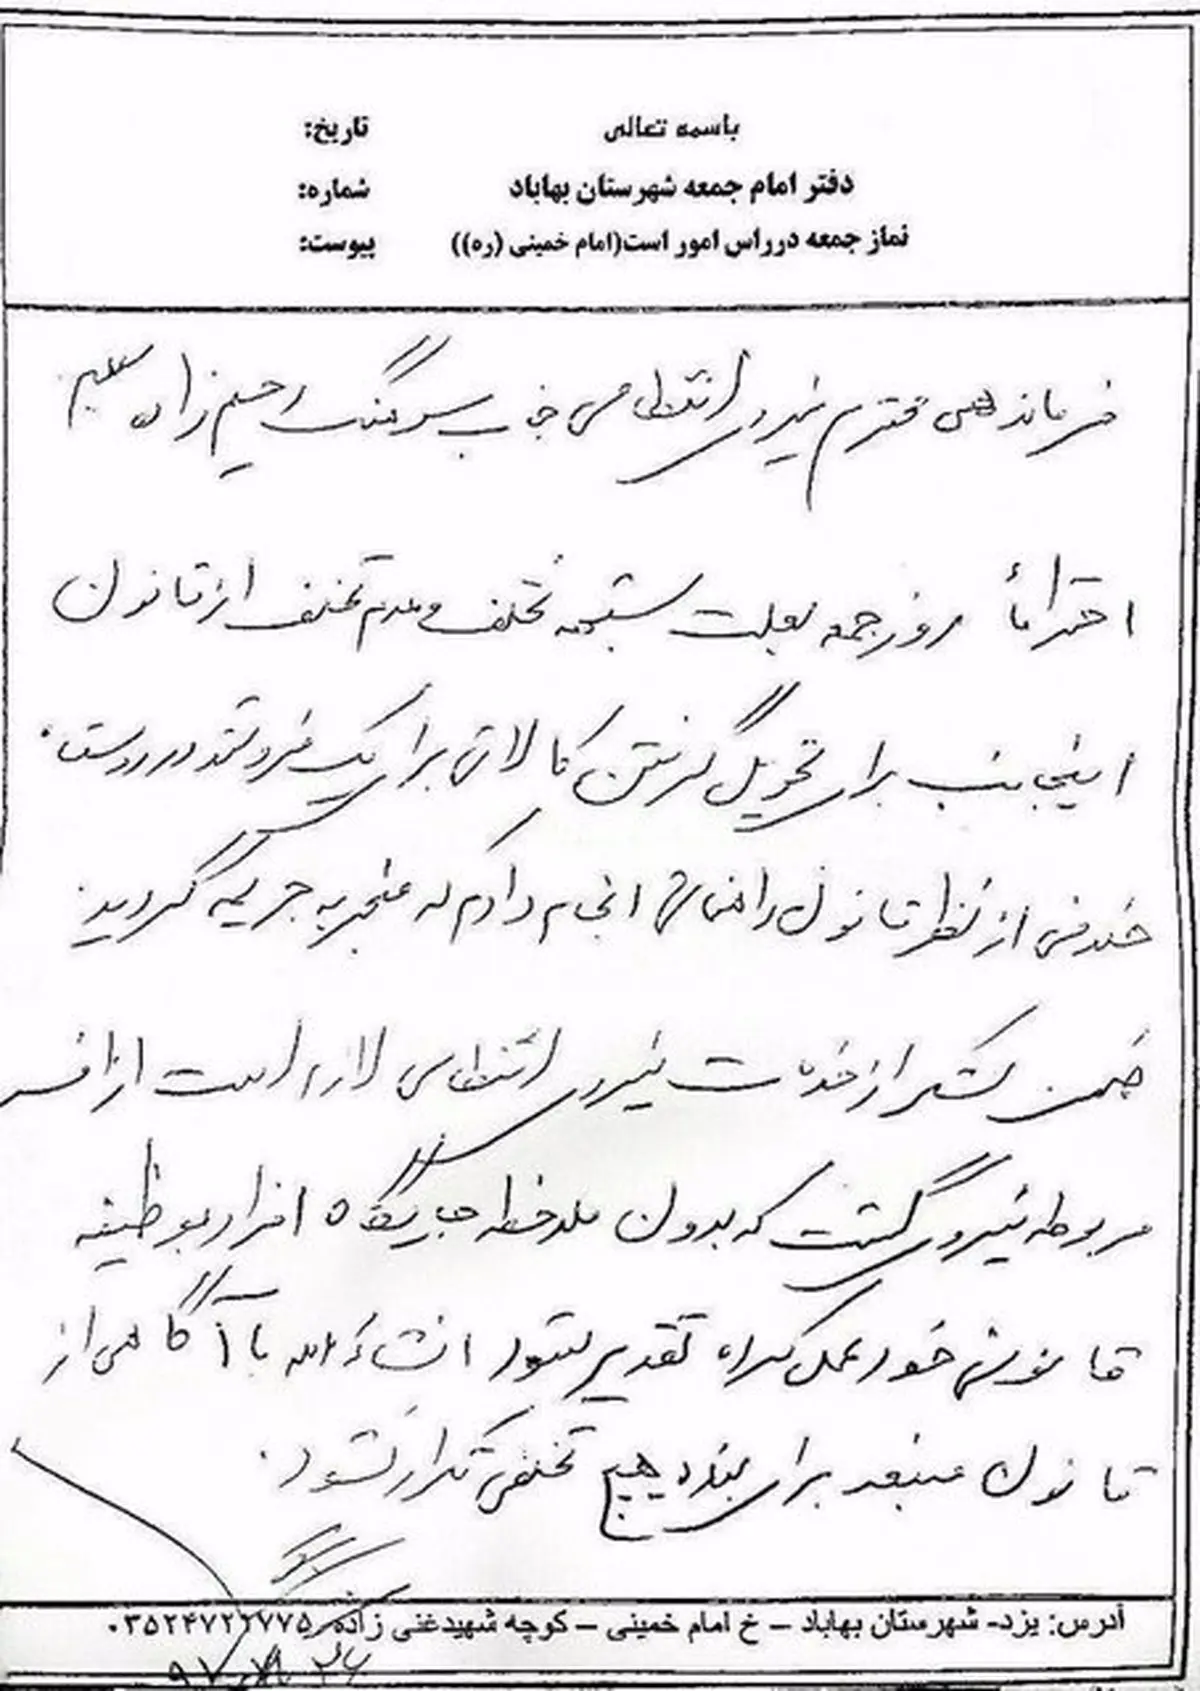 باسمه تعالی
تاریخ:
دفتر امام جمعه شهرستان بهاباد
شماره:
نماز جمعه درراس امور است(امام خمینی (ره))
پیوست:
فرماندهی محترم نیروی انتظامی جناب سرهنگ رحیم زاده
احتراماً روز جمعه بعلت شبهه تخلف و عدم تخلف از قانون
اینجانب برای تحویل گرفتن کالائی برای یک فروشنده در روستا
خلافی از نظر قانون راهنمائی انجام دادم که منجر به جریمه گردید
ضمن تشکر از خدمات نیروی انتظامی لازم است از افسر
مربوطه نیروی گشت که بدون ملاحظه جایگاه افراد بوظیفه
قانونی خود عمل کرده تقدیر شود انشاءالله با آگاهی از
قانون منبعد برای بنده هیچ تخلفی تکرار نشود.
آدرس: یزد- شهرستان بهاباد – خ امام خمینی – کوچه شهیدغنی زاده ۰۳۵۲۴۷۲۲۷۷۵